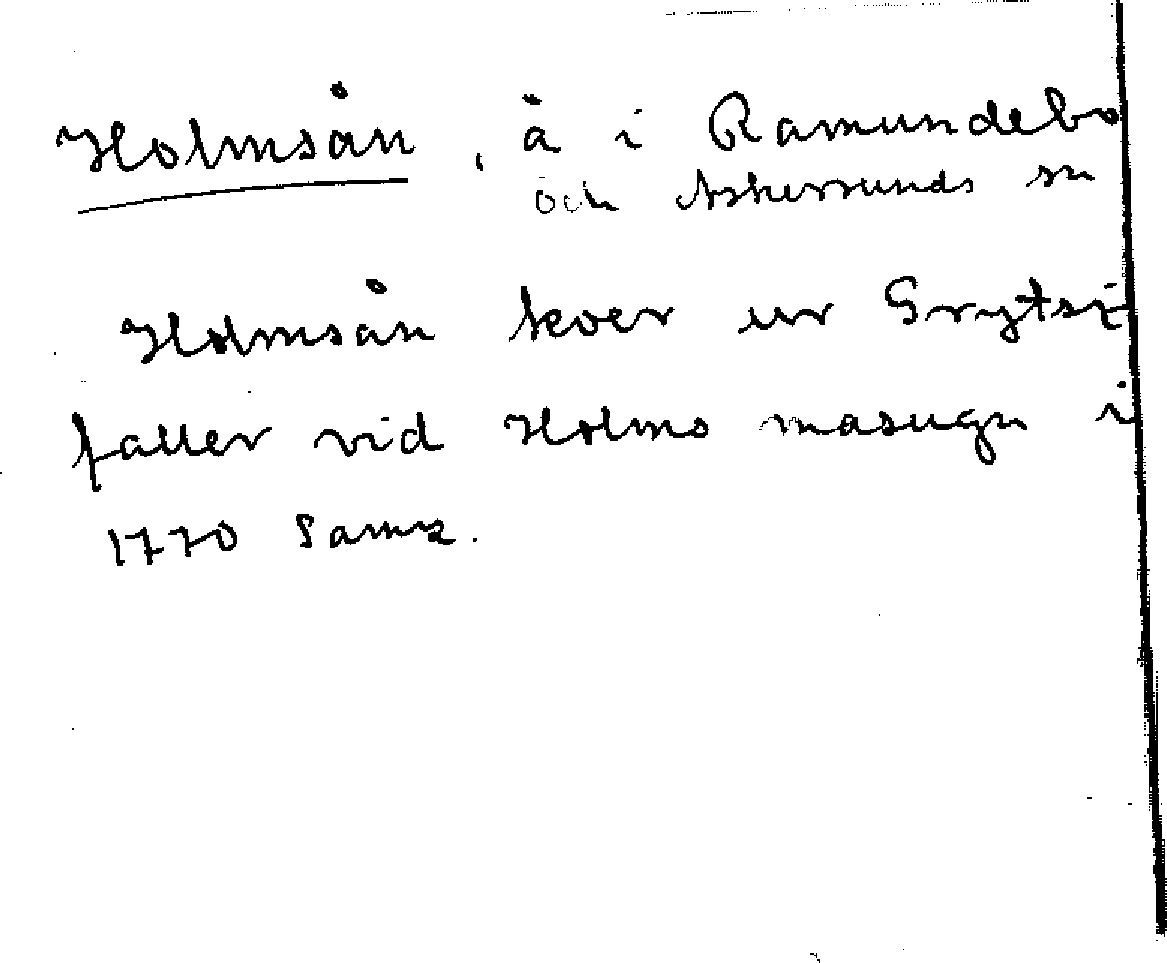 Holmsån, å i Ramundebo
och Askersunds sn
Holmsån kver ur Grytsj
faller vid Holms masugn i
1770 Samz.